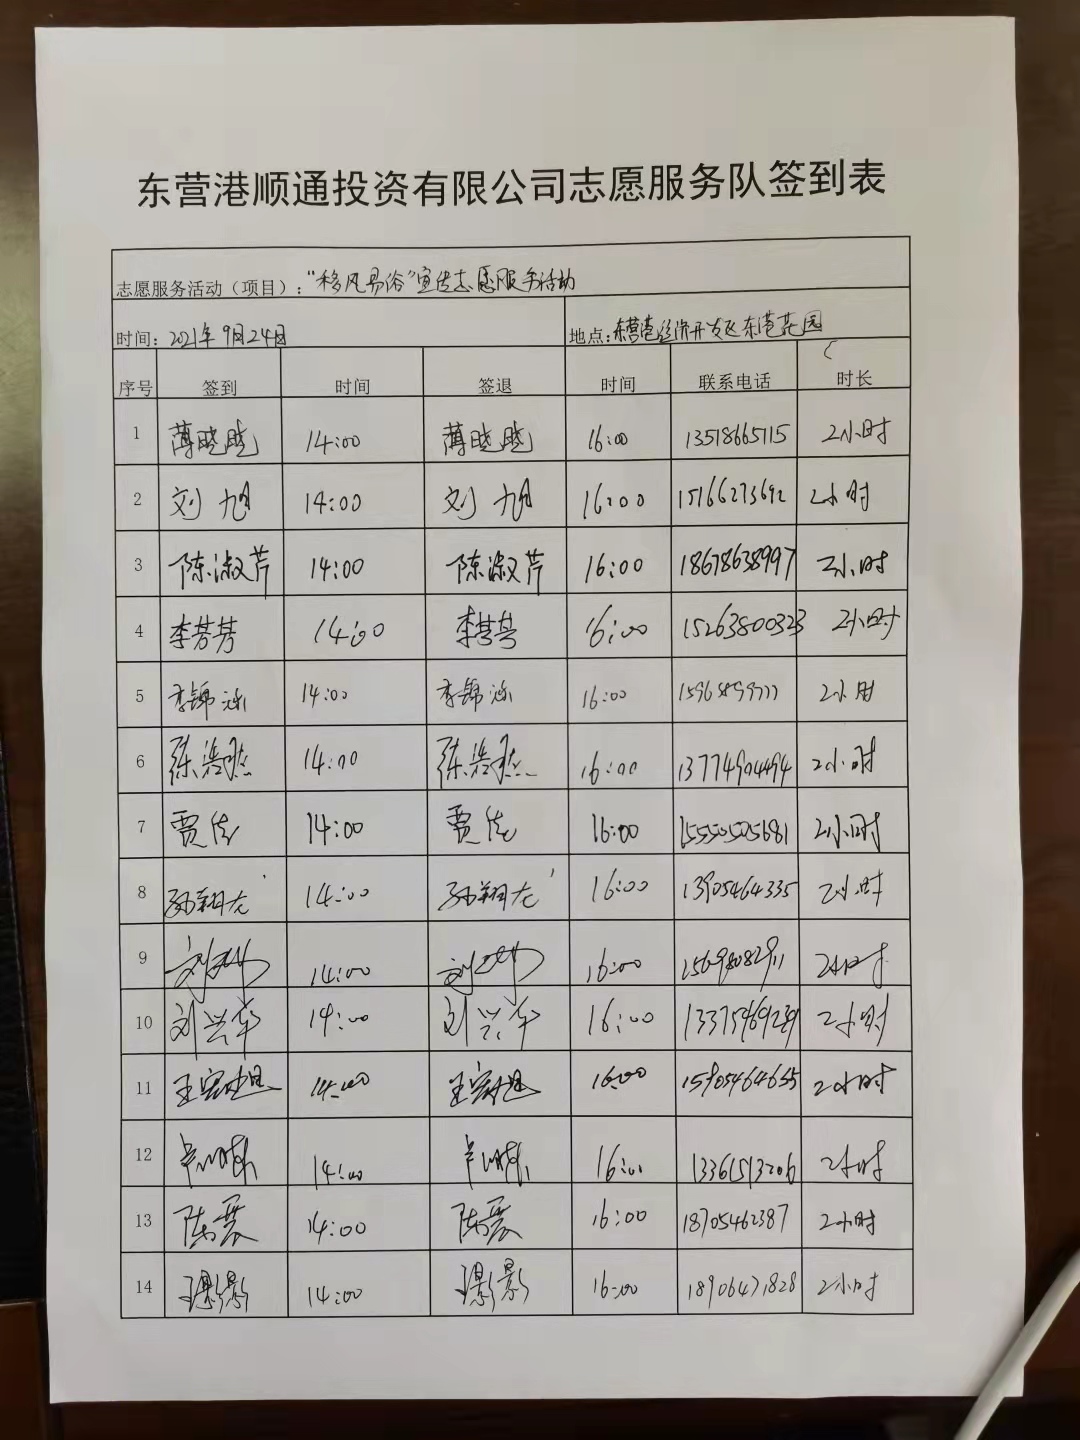 东营港顺通投资有限公司志愿服务队签到表
志愿服务活动（项目）：“移风易俗”宣传志愿服务活动
时间：2021年9月24日 地点：东营港经济开发区东港花园
序号 签到 时间 签退 时间 联系电话 时长
1 薄晓晓 14:00 薄晓晓 16:00 13518665115 2小时
2 刘旭 14:00 刘旭 16:00 15166273692 2小时
3 陈淑芹 14:00 陈淑芹 16:00 18678638997 2小时
4 李芳芳 14:00 李芳芳 16:00 15263800323 2小时
5 李锦泳 14:00 李锦泳 16:00 2小时
6 14:00 16:00 13774904494 2小时
7 贾佳 14:00 贾佳 16:00 15550505681 2小时
8 孙翔龙 14:00 孙翔龙 16:00 13905464335 2小时
9 14:00 16:00 2小时
10 刘兴华 14:00 刘兴华 16:00 2小时
11 14:00 16:00 15905464655 2小时
12 14:00 16:00 2小时
13 陈震 14:00 陈震 16:00 18705462387 2小时
14 14:00 16:00 18906471828 2小时